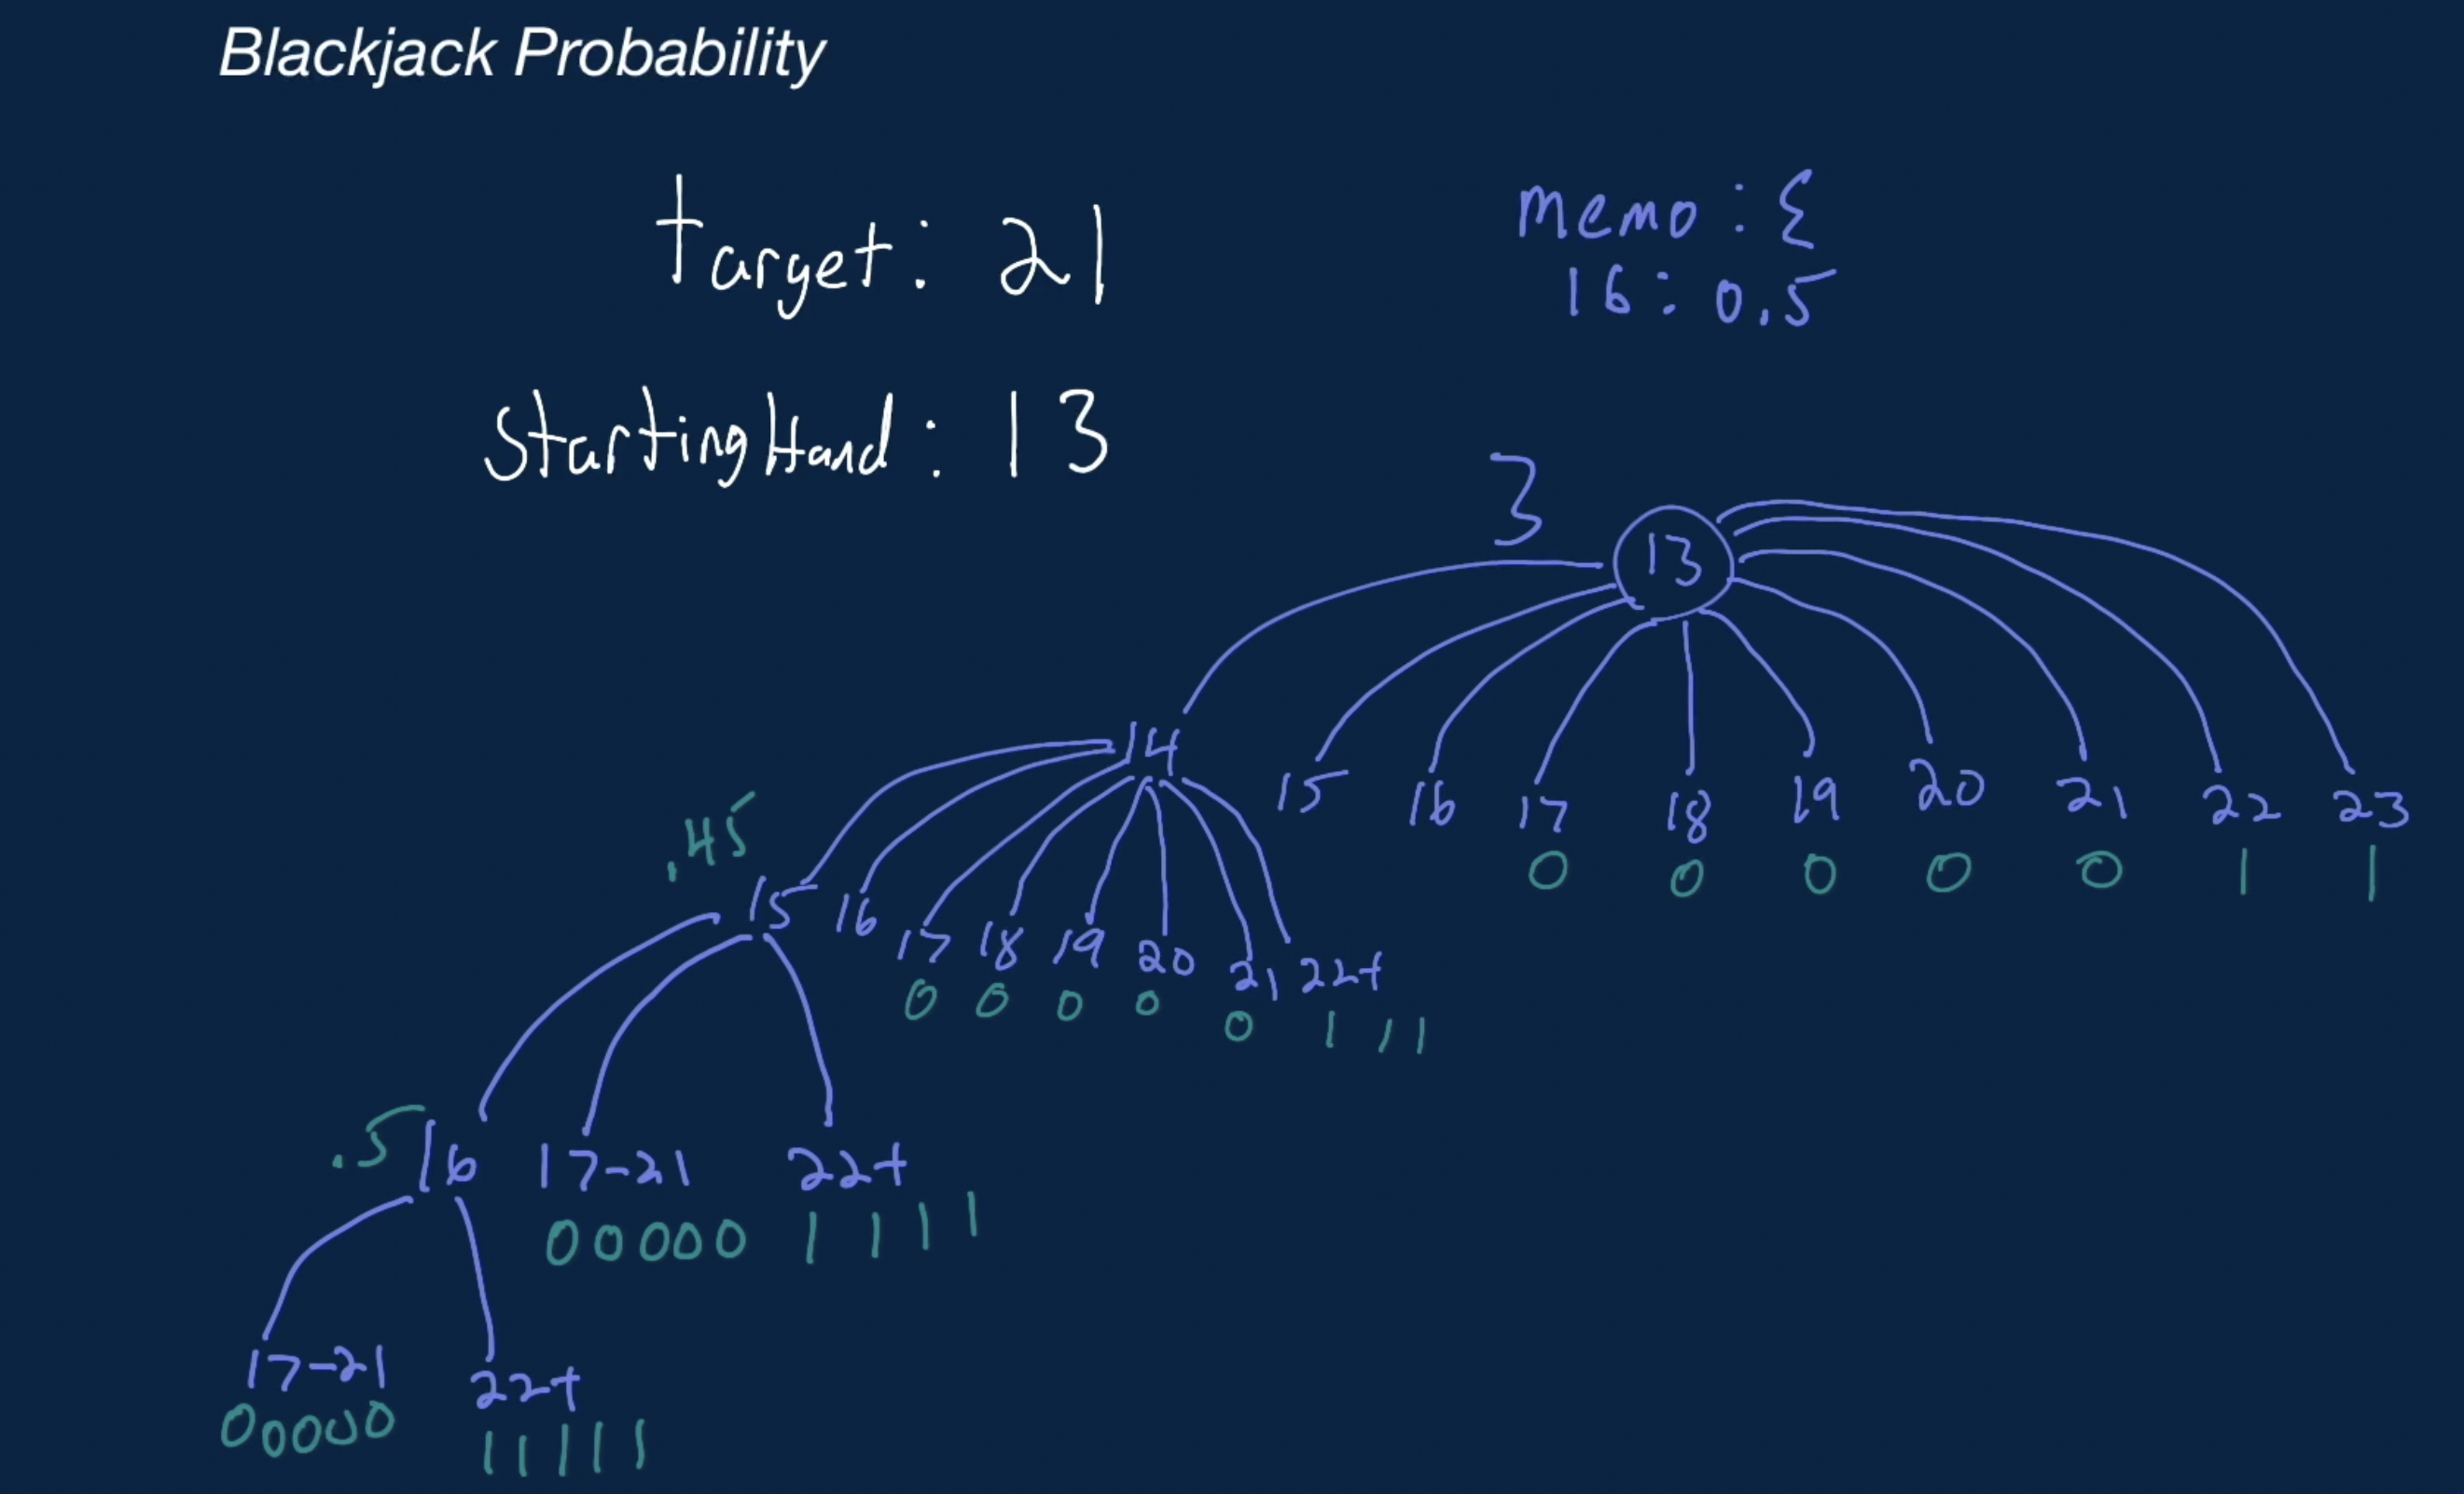 Blackjack Probability
target: 21
memo: {
16: 0.5
startingHand: 13
}
13
14
15 16 17 18 19 20 21 22 23
0 0 0 0 0 1 1
.45
15 16 17 18 19 20 21 22+
0 0 0 0 0 1 1 1
.5 16 17-21 22+
00000 1 1 1 1
17-21 22+
00000 11111